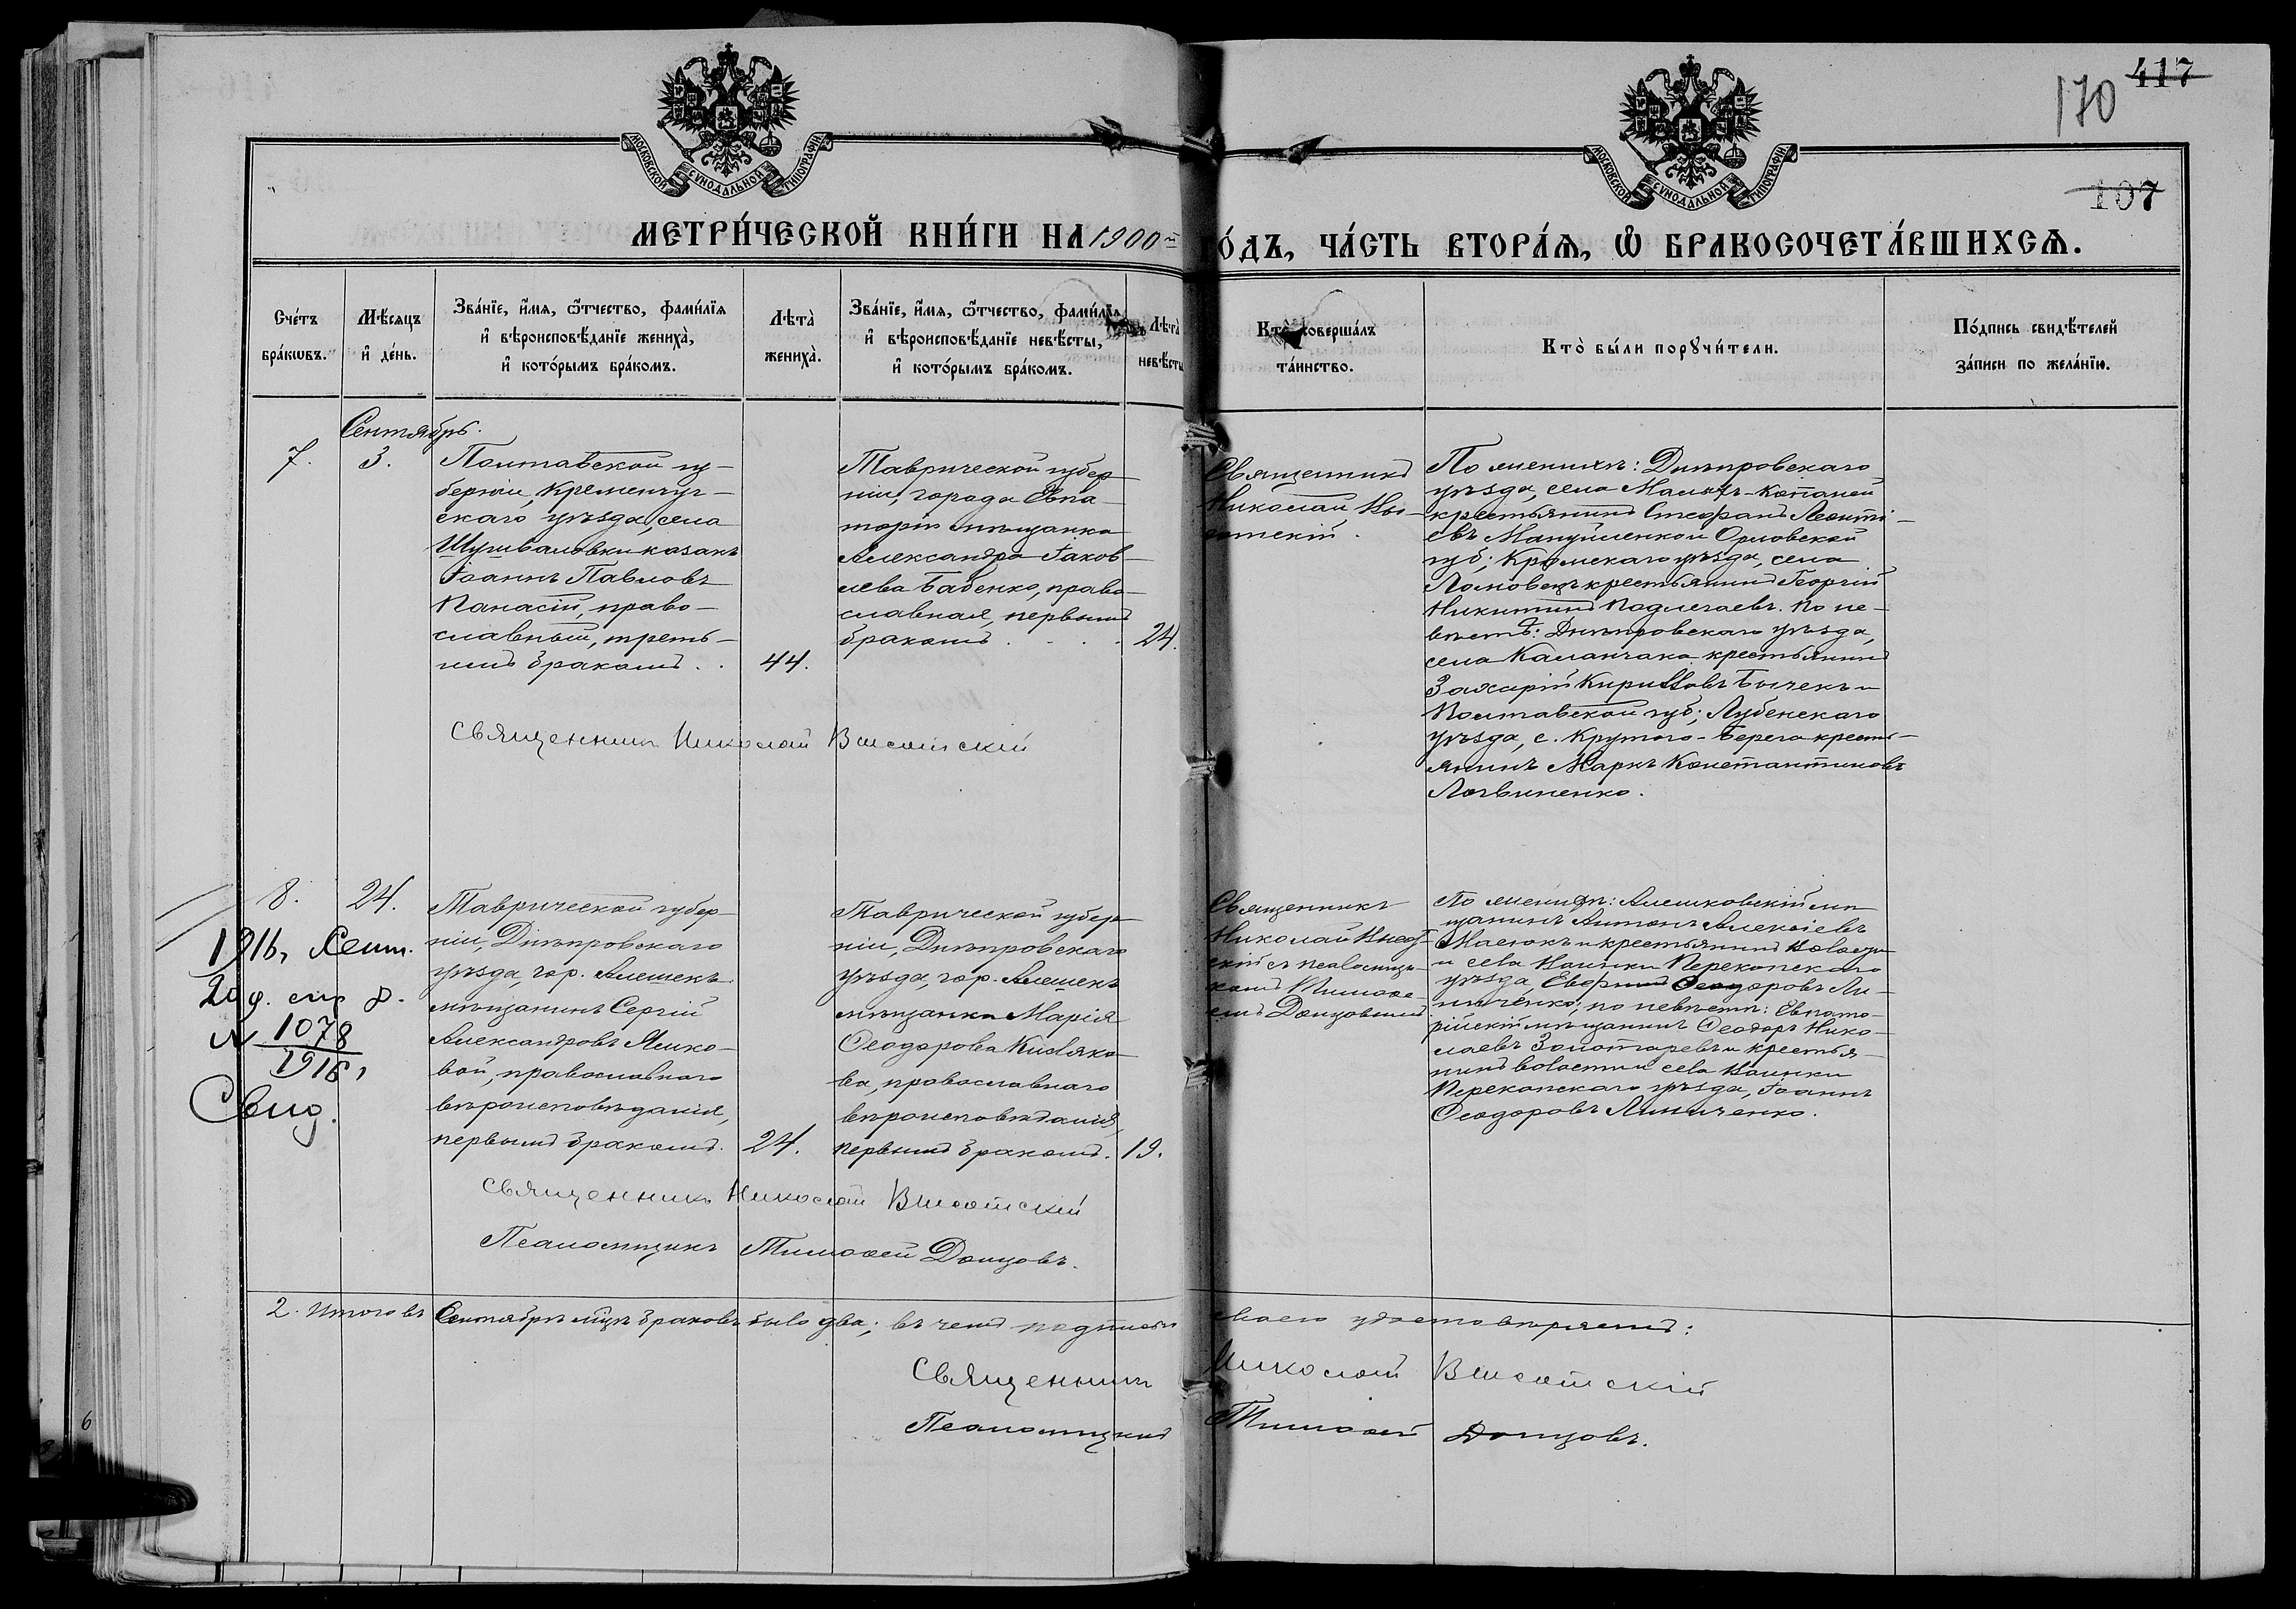 417
170
107
МОСКОВСКОЙ СѴНОДАЛЬНОЙ ТИПОГРАФІИ
МОСКОВСКОЙ СѴНОДАЛЬНОЙ ТИПОГРАФІИ
МЕТРИ́ЧЕСКОЙ КНИ́ГИ НА 1900 й ГО́ДЪ, ЧА́СТЬ ВТОРА́Ѧ, Ѽ БРАКОСОЧЕТА́ВШИХСѦ.
Сче́тъ
бра́кѡвъ.
Мѣ́сяцъ
и҆ де́нь.
Зва́нїе, и҆́мя, ѻ҆́тчество, фами́лїя
и҆ вѣроисповѣ́данїе жениха̀,
и҆ кото́рымъ бра́комъ.
Лѣта̀
жениха̀.
Зва́нїе, и҆́мя, ѻ҆́тчество, фами́лїя
и҆ вѣроисповѣ́данїе невѣ́сты,
и҆ кото́рымъ бра́комъ.
Лѣта̀
невѣ́сты
Кто̀ соверша́лъ
та́инство.
Кто̀ бы́ли порꙋчи́тели.
По́дпись свидѣ́телей
за́писи по жела́нїю.
Сентябрь.
7.
3.
Полтавской гу-
берніи, Кременчуг-
скаго уѣзда, села
казакъ
Іоаннъ Павловъ
Панасій, право-
славный, треть-
имъ бракомъ. .
44.
Таврической губер
ніи, города Евпа-
торіи мѣщанка
Александра Іаков-
лева Бабенко, право-
славная, первымъ
бракомъ . . . .
24.
Священникъ
Николай Вы-
сотскій.
По женихѣ: Днѣпровскаго
уѣзда, села Малыхъ-Копаней
крестьянинъ Стефанъ Леонті-
евъ Мануйленко и Орловской
губ; Кромскаго уѣзда, села
Ломовецъ крестьянинъ Георгій
Никитинъ Подлегаевъ. По не-
вѣстѣ: Днѣпровскаго уѣзда,
села Каланчака крестьянинъ
Захарій Кирилловъ Бычекъ и
Полтавской губ; Лубенскаго
уѣзда, с. Крутого-Берега кресть-
янинъ Маркъ Константиновъ
Логвиненко.
Священникъ Николай Высотскій
8.
24.
1916, Сент.
20 д. стр 8.
N 1078
1916,
Свид.
Таврической губер
ніи, Днѣпровскаго
уѣзда, гор. Алешекъ
мѣщанинъ Сергій
Александровъ
вой, православнаго
вѣроисповѣданія,
первымъ бракомъ.
24.
Таврической губер
ніи, Днѣпровскаго
уѣзда, гор. Алешекъ
мѣщанка Марія
Ѳеодорова Кисляко-
ва, православнаго
вѣроисповѣданія,
первымъ бракомъ.
19.
Священникъ
Николай Высот-
скій съ псаломщи-
комъ Тимоѳе-
емъ Донцовымъ
По женихѣ: Алешковскій мѣ
щанинъ Антонъ Алексіевъ
и крестьянинъ волости
и села Каинки Перекопскаго
уѣзда, Ѳеодоровъ Ли-
ниченко; по невѣстѣ: Евпато-
рійскій мѣщанинъ Ѳеодоръ Нико-
лаевъ Золотаревъ и крестья-
нинъ волости и села Каинки
Перекопскаго уѣзда, Іоаннъ
Ѳеодоровъ Линиченко.
Священникъ Николай Высотскій
Псаломщикъ Тимоѳей Донцовъ.
2. Итого въ Сентябрѣ мцѣ браковъ было два; въ чемъ подписью своею удостовѣряемъ:
Священникъ Николай Высотскій
Псаломщикъ Тимоѳей Донцовъ.
6